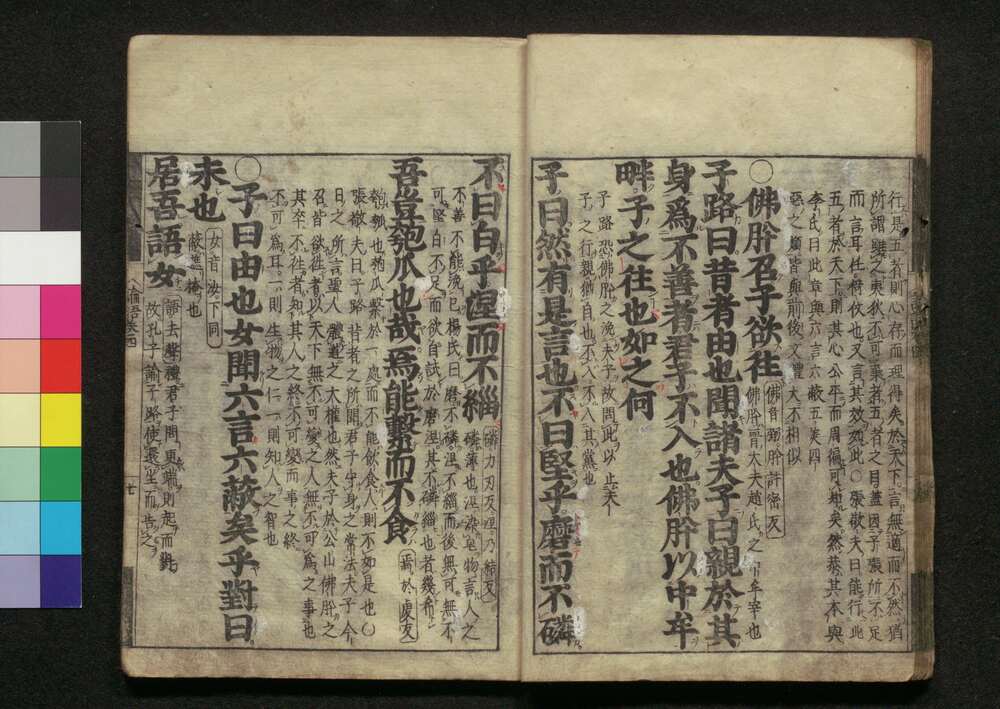 行是五者則心存而理得矣於天下言無適而不然猶
所謂雖之夷狄不可棄者五者之目蓋因子張所不足
而言耳任倚仗也又言其效如此○張敬夫曰能行此
五者於天下則其心公平而周徧可知矣然恭其本與
李氏曰此章與六言六蔽五美四
惡之類皆與前後文體大不相似
○佛肸召子欲往
佛音弼肸許密反
佛肸晉大夫趙氏之中牟宰也
子路曰昔者由也聞諸夫子曰親於其
身爲不善者君子不入也佛肸以中牟
畔子之往也如之何
子路恐佛肸之浼夫子故問此以止夫
子之行親猶自也不入不入其黨也
子曰然有是言也不曰堅乎磨而不磷
不曰白乎涅而不緇
磷力刃反涅乃結反
磷薄也涅染皂物言人之
不善不能浼已楊氏曰磨不磷涅不緇而後無可無不
可堅白不足而欲自試於磨涅其不磷緇也者幾希
吾豈匏瓜也哉焉能繫而不食
焉於虔反
匏瓠也匏瓜繫於一處而不能飲食人則不如是也○
張敬夫曰子路昔者之所聞君子守身之常法夫子今
日之所言聖人體道之大權也然夫子於公山佛肸之
召皆欲往者以天下無不可變之人無不可爲之事也
其卒不往者知其人之終不可變而事之終
不可爲耳一則生物之仁一則知人之智也
○子曰由也女聞六言六蔽矣乎對曰
未也
女音汝下同
蔽遮掩也
居吾語女
語去聲禮君子問更端則起而對
故孔子諭子路使還坐而告之
論語卷四
七